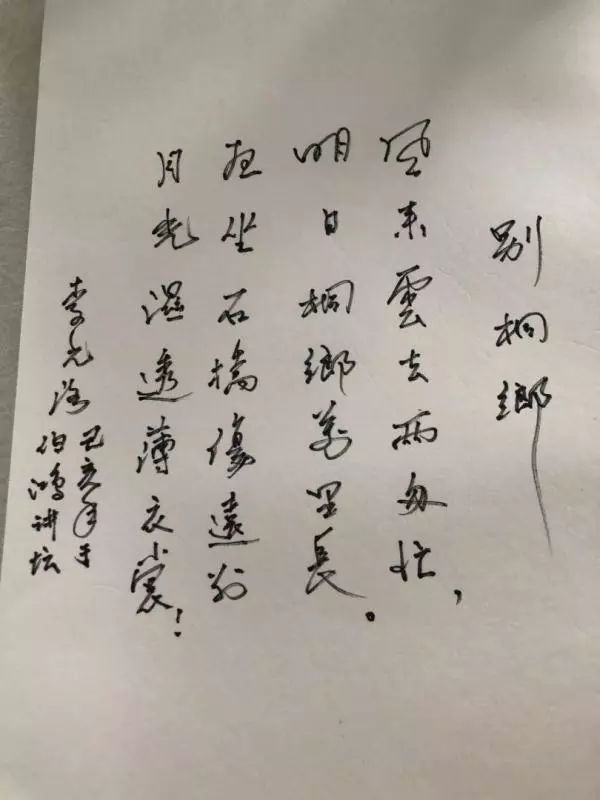 别桐鄉
风来雲去两匆忙，
明日桐鄉万里長。
夜坐石橋傷遠别
月光濕透薄衣裳！
李元洛
己亥年于
伯鴻讲坛